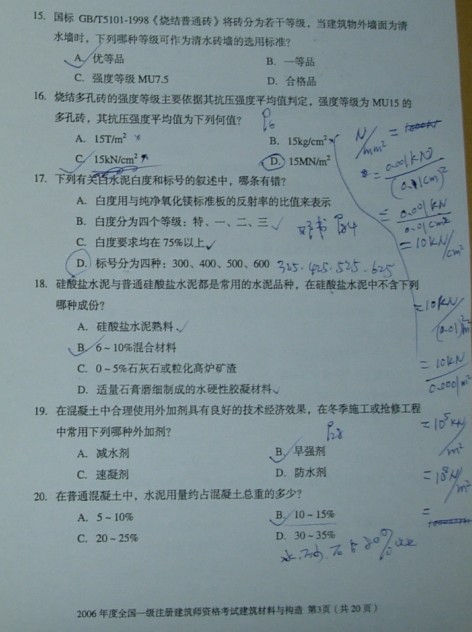 15. 国标 GB/T5101-1998《烧结普通砖》将砖分为若干等级，当建筑物外墙面为清
水墙时，下列哪种等级可作为清水砖墙的选用标准？
A. 优等品 B. 一等品
C. 强度等级 MU7.5 D. 合格品
16. 烧结多孔砖的强度等级主要依据其抗压强度平均值判定，强度等级为 MU15 的
多孔砖，其抗压强度平均值为下列何值？
A. 15T/m² B. 15kg/cm²
C. 15kN/cm² D. 15MN/m²
17. 下列有关白水泥白度和标号的叙述中，哪条有错？
A. 白度用与纯净氧化镁标准板的反射率的比值来表示
B. 白度分为四个等级：特、一、二、三
C. 白度要求均在 75%以上
D. 标号分为四种：300、400、500、600 325.425.525.625
18. 硅酸盐水泥与普通硅酸盐水泥都是常用的水泥品种，在硅酸盐水泥中不含下列
哪种成份？
A. 硅酸盐水泥熟料
B. 6～10%混合材料
C. 0～5%石灰石或粒化高炉矿渣
D. 适量石膏磨细制成的水硬性胶凝材料
19. 在混凝土中合理使用外加剂具有良好的技术经济效果，在冬季施工或抢修工程
中常用下列哪种外加剂？
A. 减水剂 B. 早强剂
C. 速凝剂 D. 防水剂
20. 在普通混凝土中，水泥用量约占混凝土总重的多少？
A. 5～10% B. 10～15%
C. 20～25% D. 30～35%
2006 年度全国一级注册建筑师资格考试建筑材料与构造 第3页（共 20 页）
N/mm² =
0.001KN
(0.1cm)²
= 0.001KN
0.01cm²
= 10KN/cm²
= 10KN
(0.01)²m²
= 10KN
0.0001m²
= 10⁵KN
m²